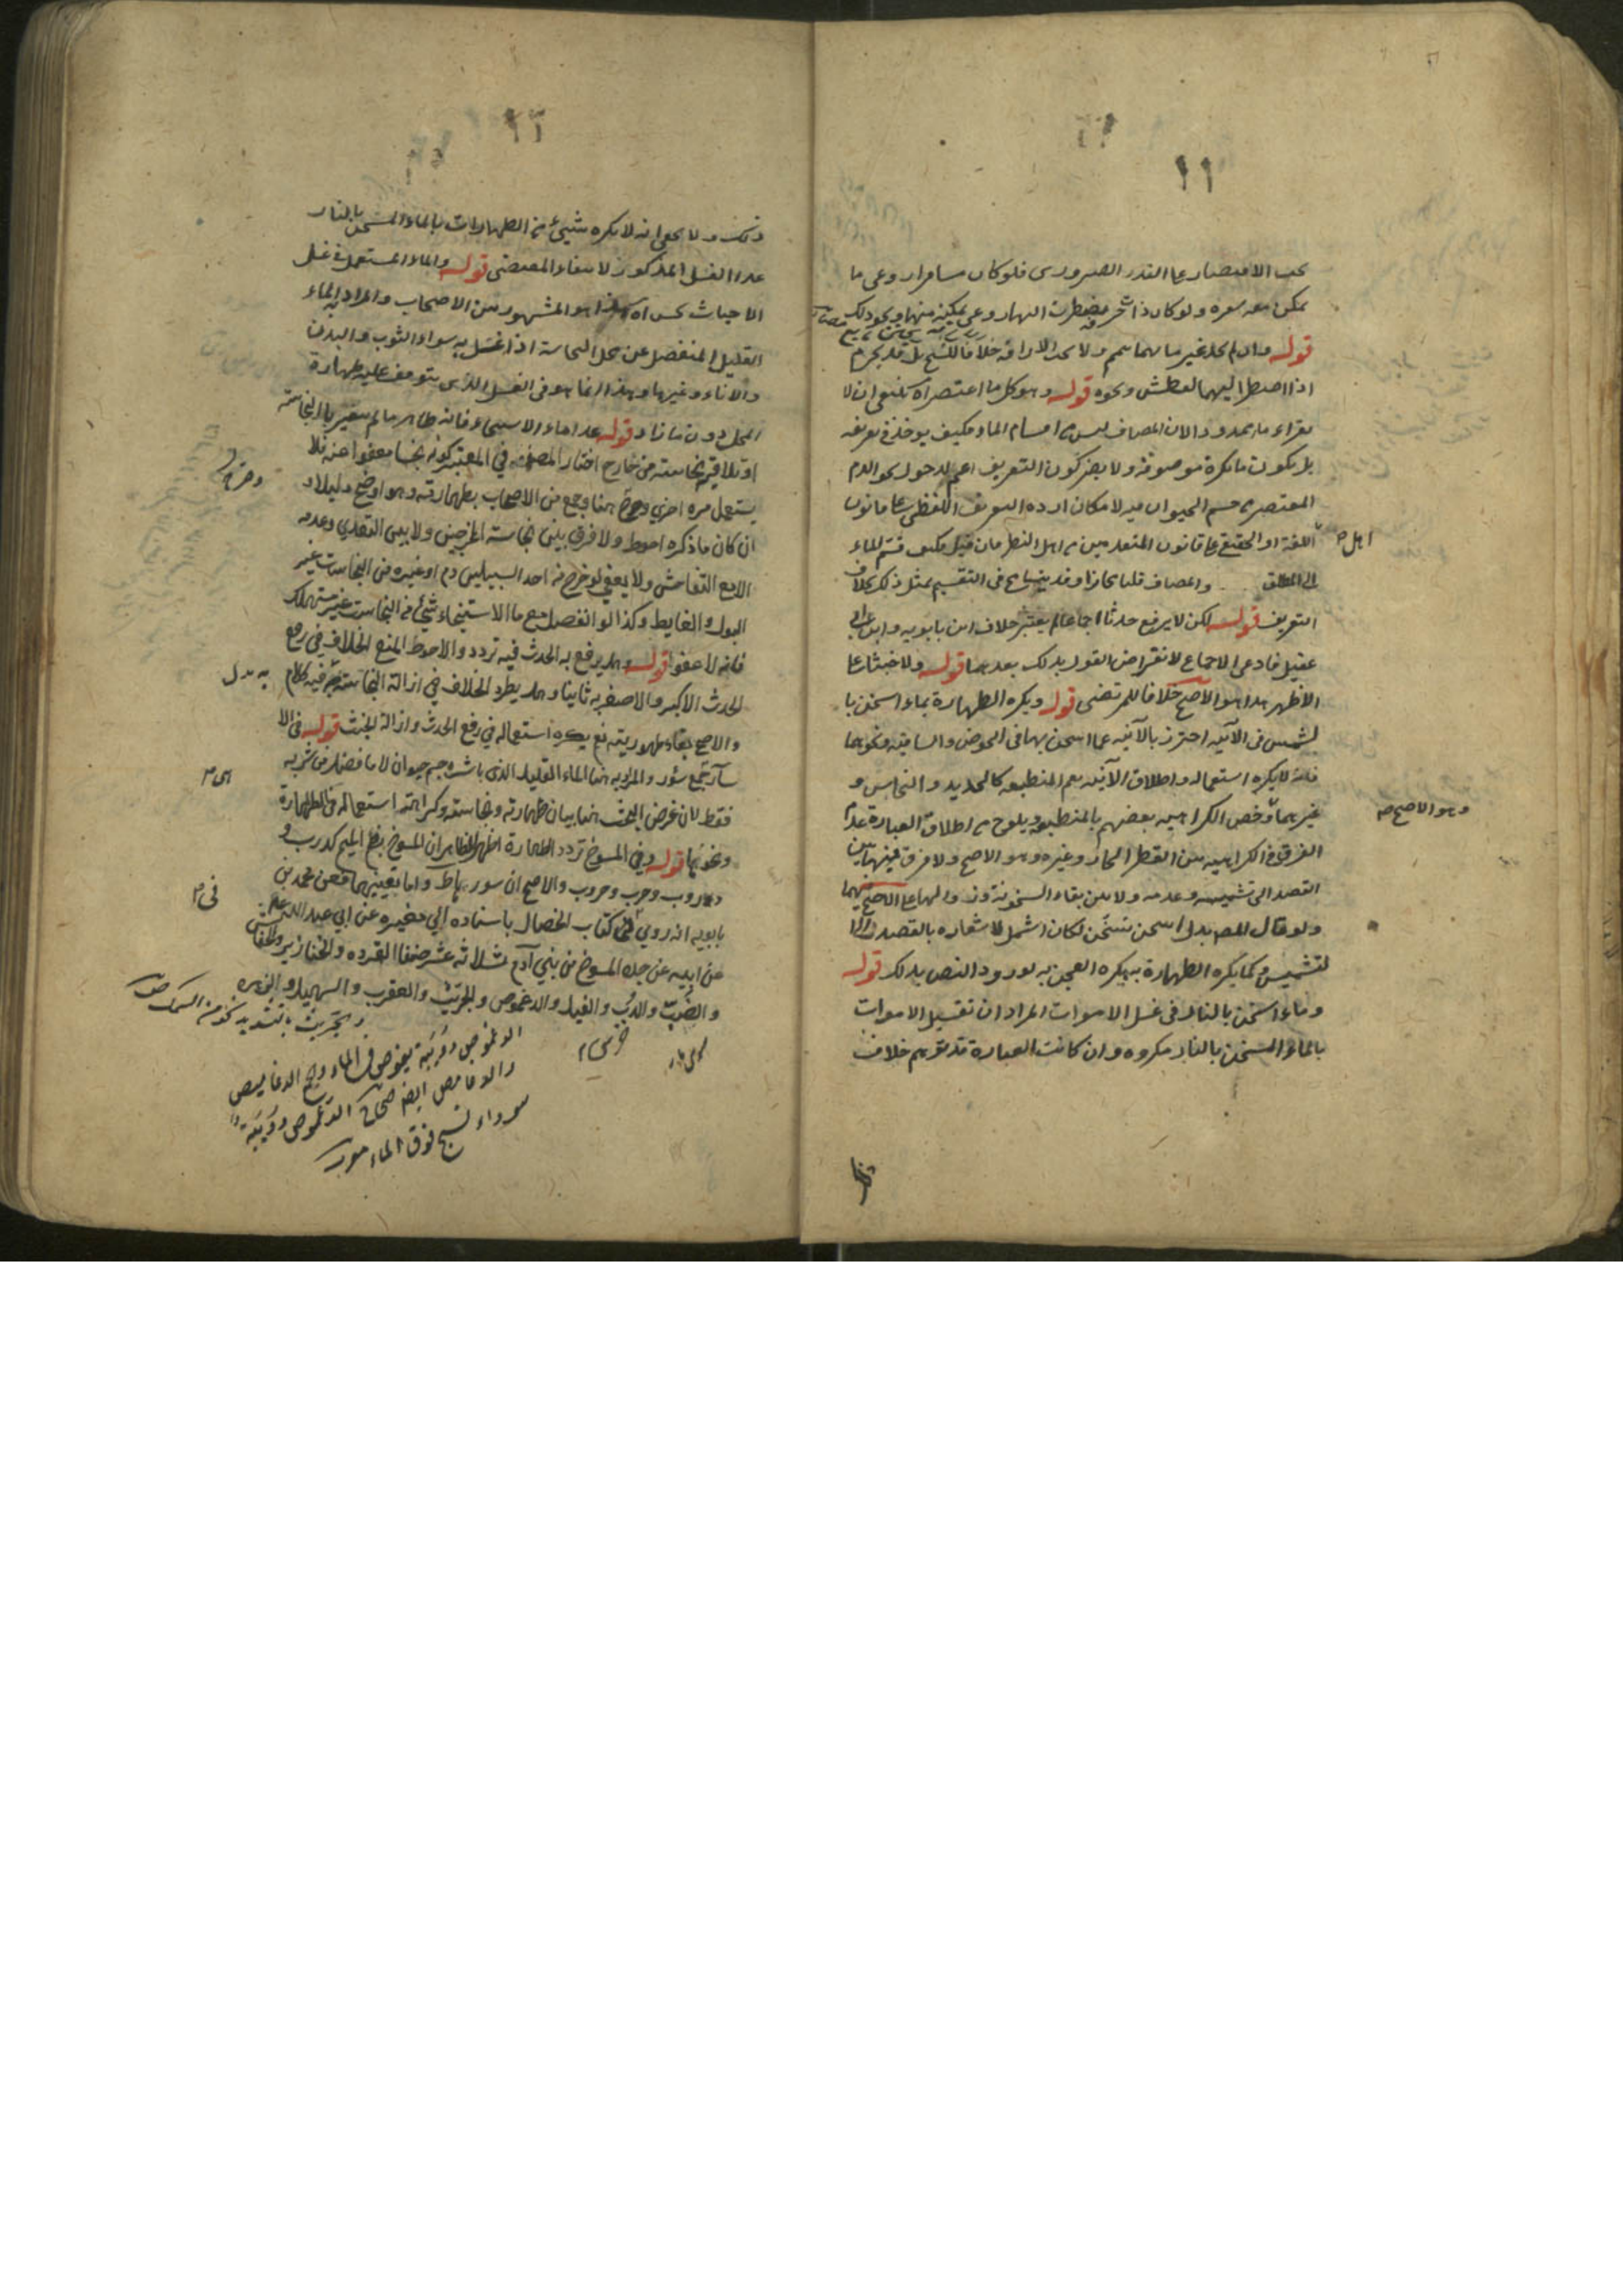 ١١
يجب الاقتصار على القدر الضروري فلو كان مسافرا روعي ما
يمكن معه سوره ولو كان ذا شجر روعي ونحو ذلك
قوله وان لم يجد غير مائهما تيمم ولا يجب الاراقة خلافا للشيخ بل قد يحرم
اذا اضطر اليهما لعطش ونحوه قوله وهو كل ما اعتصر اه ينبغي ان لا
يقراء ما ممدودا لان المضاف ليس من اقسام الماء فكيف يوخذ في تعريفه
بل يكون ما نكرة موصوفة ولا يضر كون التعريف اعم لدخول نحو الدم
المعتصر من جسم الحيوان فيه لامكان ارادة التعريف اللفظي على قانون
اهل
اللغة او الحقيقي على قانون المتقدمين من اهل النظر فان قيل فكيف قسم الماء
الى المطلق والمضاف قلنا مجازا وقد يتسامح في التقسيم بمثل ذلك بخلاف
التعريف قوله لكن لا يرفع حدثا اجماعا لم يعتبر خلاف ابن بابويه وابن ابي
عقيل فادعى الاجماع لانقراض القول بذلك بعدهما قوله ولا خبثا على
الاظهر هذا هو الاصح خلافا للمرتضى قوله ويكره الطهارة بماء اسخن با
لشمس في الآنية احترز بالآنية عما اسخن بها في الحوض والساقية ونحوهما
فانه لا يكره استعماله واطلاق الآنية يعم المنطبعة كالحديد والنحاس و
غيرهما وخص الكراهية بعضهم بالمنطبعة ويلوح من اطلاق العبارة عدم
وهو الاصح صح
الفرق في الكراهية بين القطر الحار وغيره وهو الاصح ولا فرق فيهما بين
القصد الى تشميسه وعدمه ولا بين بقاء السخونة وزوالها على الاصح فيهما
ولو قال المص بدل اسخن تسخن لكان اشمل لاشعاره بالقصد الى
لتشميس وكما يكره الطهارة به يكره العجن به لورود النص بذلك قوله
وماء اسخن بالنار في غسل الاموات المراد ان تغسيل الاموات
بالماء المسخن بالنار مكروه وان كانت العبارة قد توهم خلاف
١٢
ذلك ولا يخفى انه لا يكره شيئ من الطهارات بالماء المسخن بالنار
عدا الغسل المذكور لانتفاء المقتضي قوله والماء المستعمل في غسل
الاخباث نجس اه هذا هو المشهور بين الاصحاب والمراد به الماء
القليل المنفصل عن محل النجاسة اذا غسل به سواء الثوب والبدن
والاناء وغيرها وهذا انما هو في الغسل الذي يتوقف عليه طهارة
المحل دون ما زاد قوله عدا ماء الاستنجاء فانه طاهر ما لم يتغير بالنجاسة
او تلاقيه نجاسة من خارج اختار المصنف في المعتبر كونه نجسا معفوا عنه فلا
يستعمل مرة اخرى وصرح هنا وجمع من الاصحاب بطهارته وهو اوضح دليلا و
وصرح
ان كان ما ذكره احوط ولا فرق بين نجاسة المخرجين ولا بين التعدي وعدمه
الا مع التفاحش ولا يعفى لو خرج من احد السبيلين دم او غيره من النجاسات غير
البول والغايط وكذا لو انفصل مع ماء الاستنجاء شيئ من النجاسات غير مستهلك
فانه لا عفو قوله وهل يرفع به الحدث فيه تردد والاحوط المنع الخلاف في رفع
الحدث الاكبر والاصغر به ثانيا وهل يطرد الخلاف في ازالة النجاسة به فيه كلام
والاصح بقاء طهوريته نعم يكره استعماله في رفع الحدث وازالة الخبث قوله في الا
سآر جمع سؤر والمراد به هنا الماء القليل الذي باشره جسم حيوان لا ما فضل من شربه
فقط لان غرض البحث هنا بيان طهارته ونجاسته وكراهته استعماله في الطهارة
ونحوها قوله وفي المسوخ تردد الطهارة اظهر الظاهر ان المسوخ بضم الميم كدرب
ودروب وحرب وحروب والاصح ان سورها ط واما تعيينها فعن محمد بن
بابويه انه روى في كتاب الخصال باسناده الى مغيره عن ابي عبد الله علم
في
عن ابيه عن جده المسوخ من بني آدم ثلاثة عشر صنفا القرده والخنازير والخفاش
والضب والدب والفيل والدعموص والجريث والعقرب والسهيل والزهره
والجريث بالتشديد نوع من السمك صحاح
الدعموص دويبة يغوص في الماء وجمع الدعاميص
والدعامص ايضا صحاح الدعموص دويبة
سوداء تسبح فوق الماء مغرب